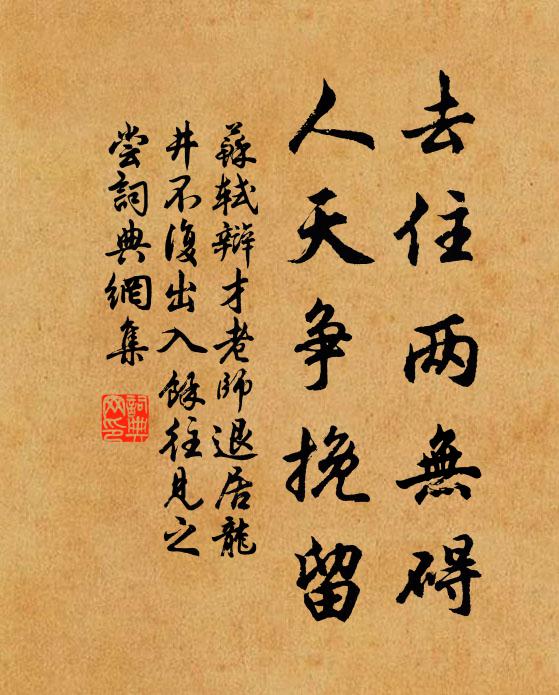 去住两無碍
人天争挽留
蘇轼辯才老師退居龍
井不復出入餘往見之
尝詞典網集
詞典
网印